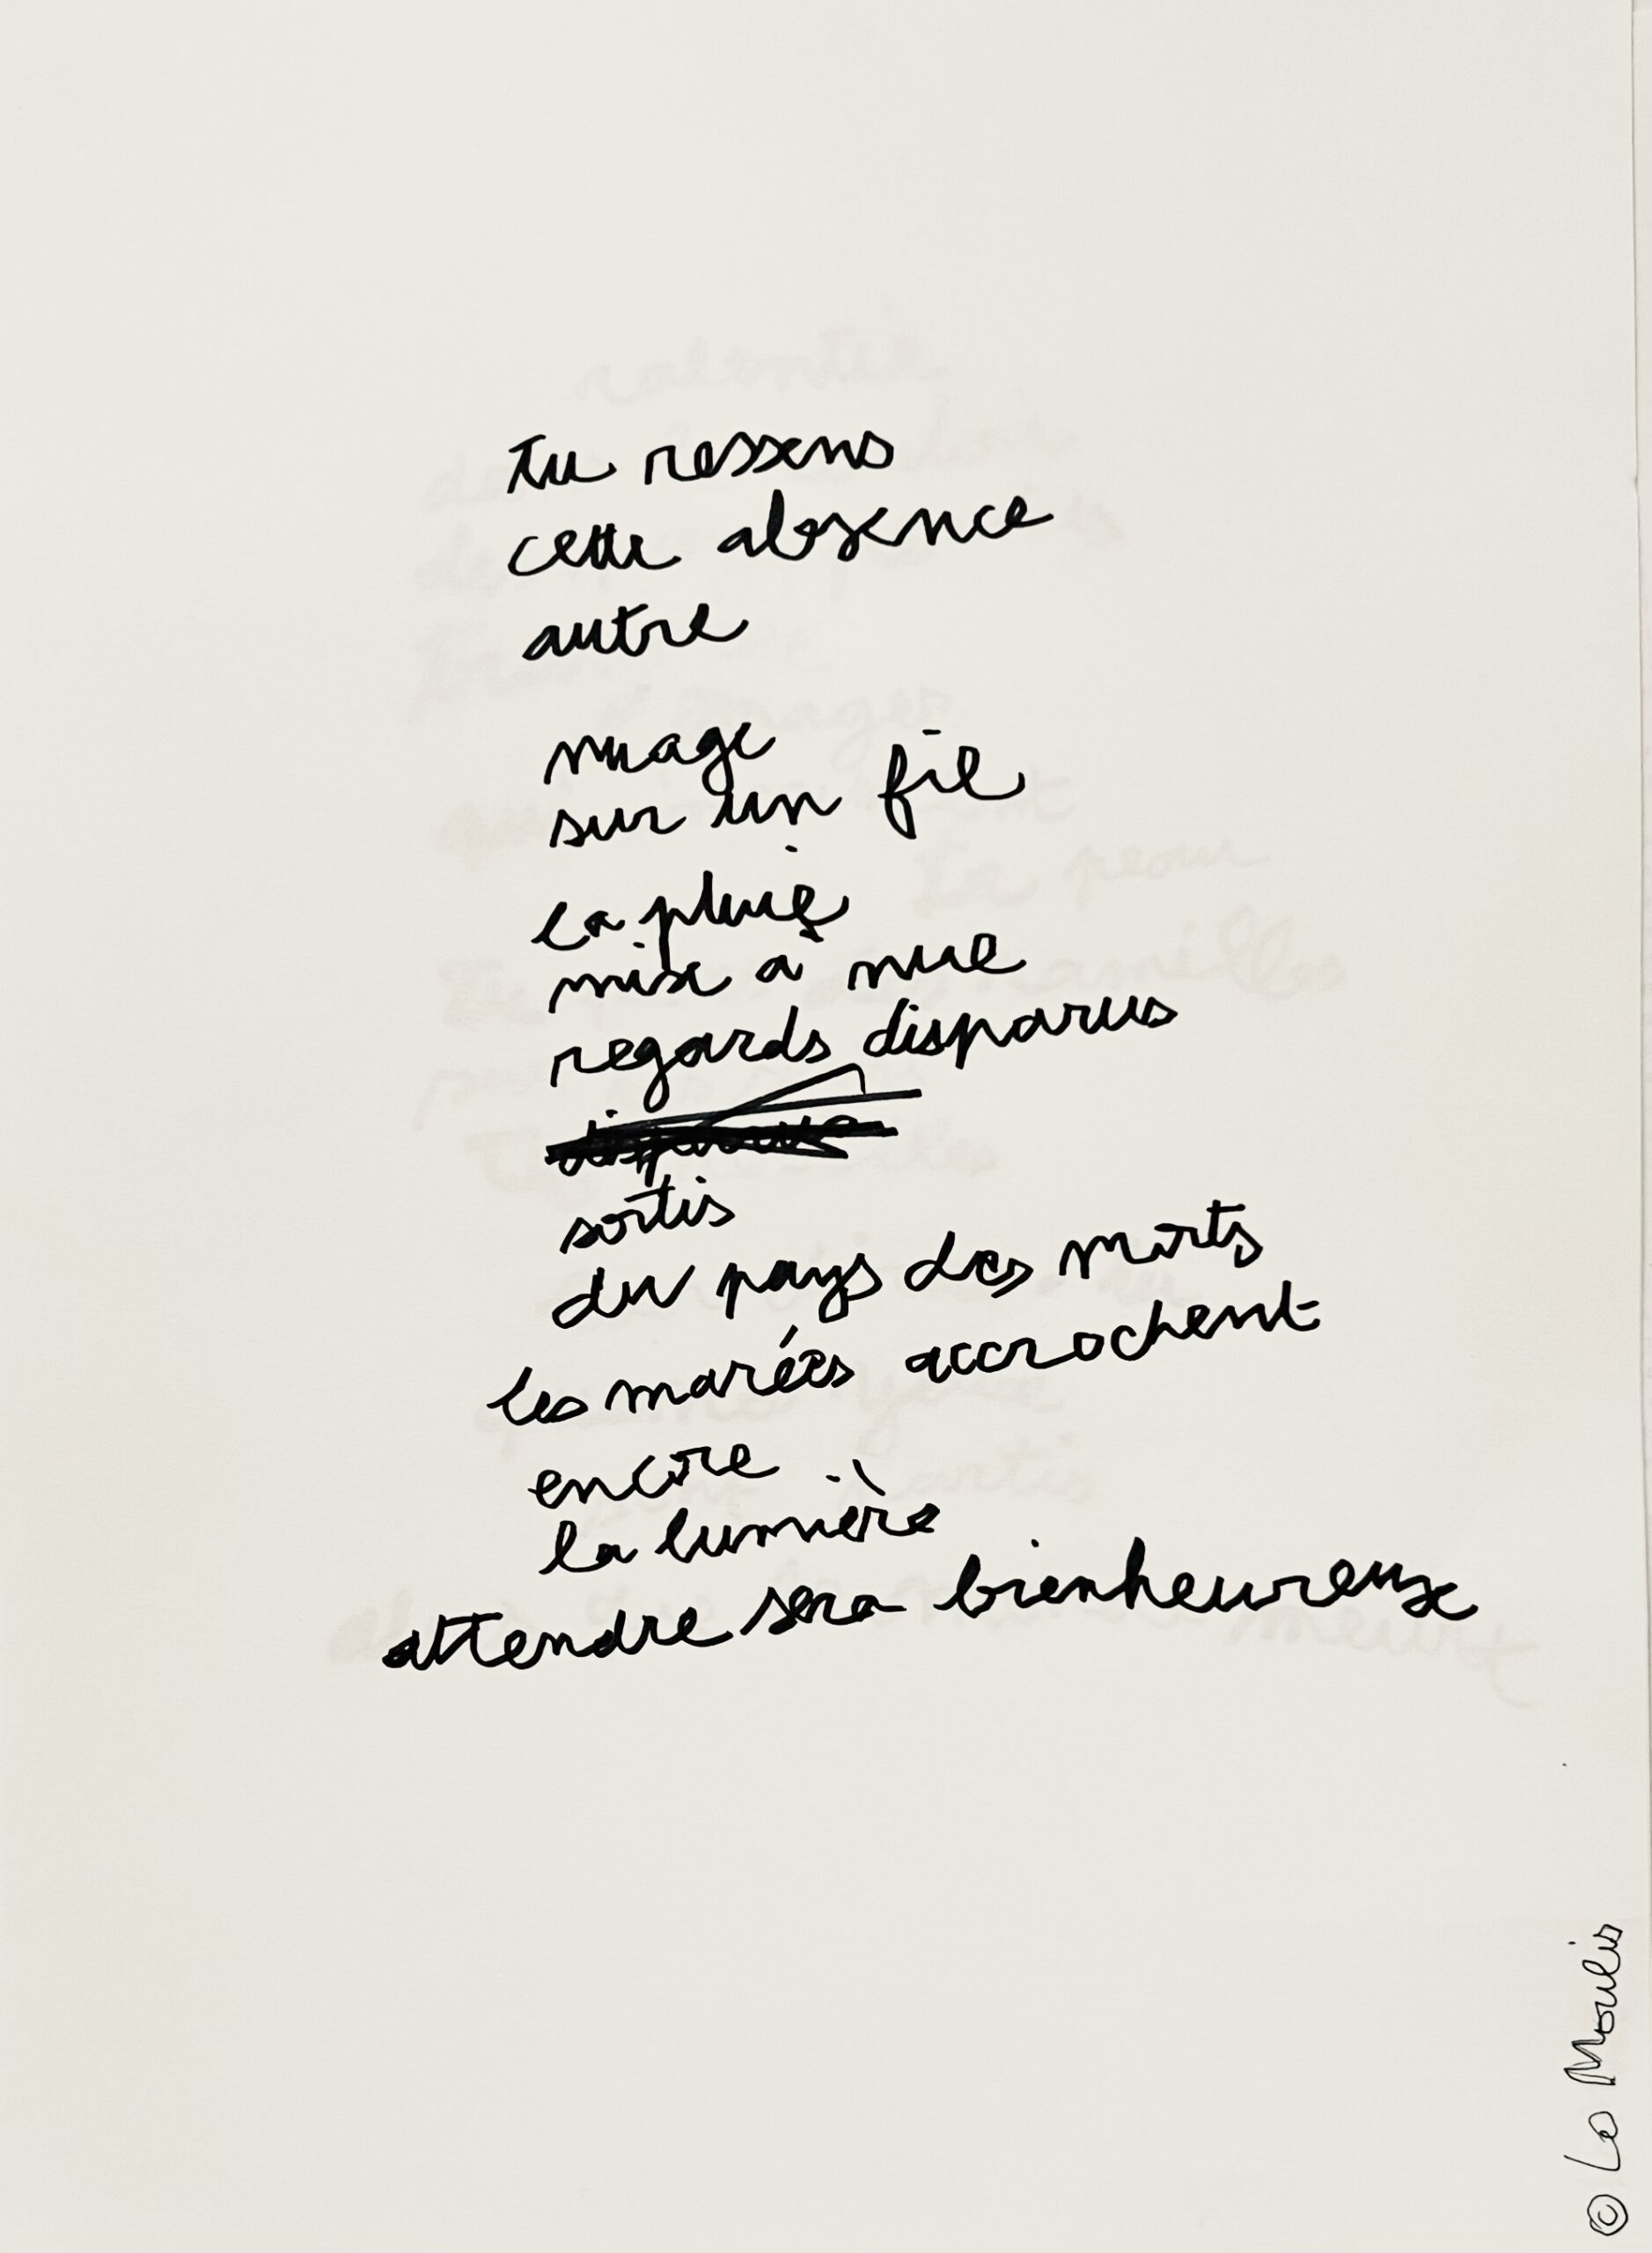 Tu ressens
cette absence
autre
nuage
sur un fil
la pluie
mise à nue
regards disparus
sortis
du pays des morts
les marées accrochent
encore
la lumière
attendre sera bienheureux
© Lo Moulis